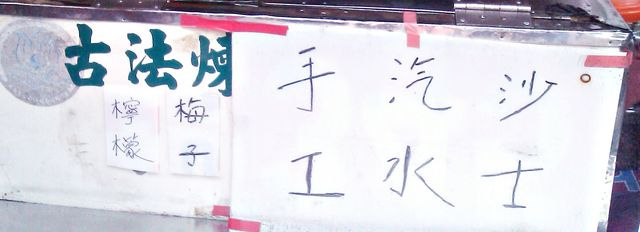 古法煉
梅子
檸檬
沙士
汽水
手工